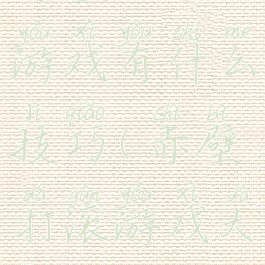 yóu xì yǒu shí me
游戏有什么
jì qiǎo chì bì
技巧(赤壁
dǎ gǔn yóu xì dà
打滚游戏大